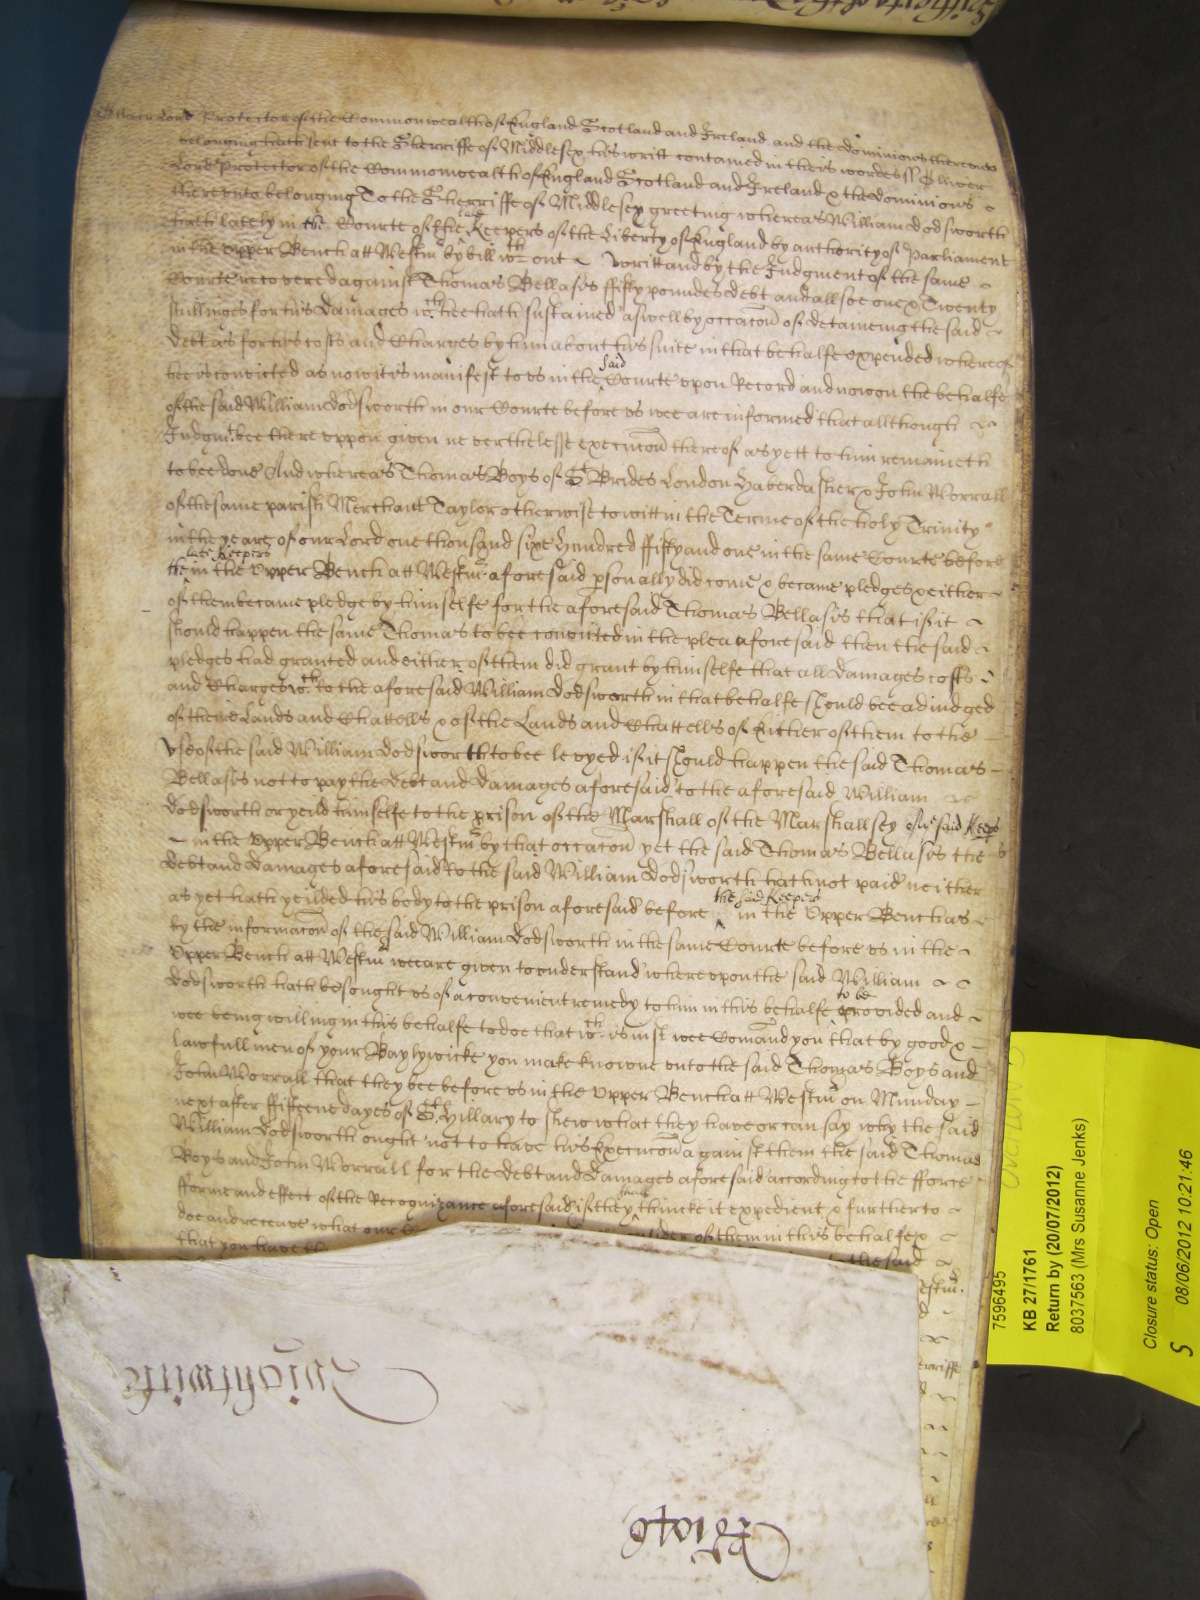 Oliver Lord Protector of the Commonwealth of England Scotland and Ireland and the Dominions thereunto
belonging hath sent to the Sherriffe of Middlesex his writt contained in theis wordes ss Oliver
Lord Protector of the Commonwealth of England Scotland and Ireland & the dominions
thereunto belonging To the Sherriffe of Middlesex greeting whereas William Dodsworth
hath lately in the Courte of the late Keepers of the Liberty of England by authority of Parliament
in the upper Bench att Westm by bill wth out writt and by the Judgment of the same
Courte recovered against Thomas Bellasis fifty poundes debt and allsoe one & Twenty
shillinges for his damages wch hee hath sustained aswell by occacon of detaineing the said
debt as for his costs and Charges by him about his suite in that behalfe expended whereof
hee is convicted as now it is manifest to us in the said Courte upon Record and now on the behalfe
of the said William Dodsworth in our Courte before us wee are informed that allthough
Judgmt bee there uppon given neverthelesse execucon thereof as yett to him remaineth
to bee done And whereas Thomas Boys of St Brides London Haberdasher & John Worrall
of the same parish Merchant Taylor otherwise to witt in the Terme of the holy Trinity
in the yeare of our Lord one thousand sixe hundred fifty and one in the same Courte before
the late Keepers in the Upper Bench att Westm aforesaid psonally did come & became pledges & either
of them became pledge by himselfe for the aforesaid Thomas Bellasis that if it
should happen the same Thomas to bee convicted in the plea aforesaid then the said
pledges had granted and either of them did grant by himselfe that all damages costs
and Charges wch to the aforesaid William Dodsworth in that behalfe should bee adiudged
of theire Lands and Chattells & of the Lands and Chattells of Either of them to the
use of the said William Dodsworth to bee levyed if it should happen the said Thomas
Bellasis not to pay the debt and damages aforesaid to the aforesaid William
Dodsworth or yeild himselfe to the prison of the Marshall of the Marshallsey of the said Keeps
in the Upper Bench att Westm by that occacon yet the said Thomas Bellasis the
debt and damages aforesaid to the said William Dodsworth hath not paid neither
as yet hath yeilded his body to the prison aforesaid before the said Keepers in the Upper Bench as
by the informacon of the said William Dodsworth in the same Courte before us in the
Upper Bench att Westm wee are given to understand whereupon the said William
Dodsworth hath besought us of a convenient remedy to him in this behalfe to be provided and
wee being willing in this behalfe to doe that wch is iust wee Comand you that by good &
lawfull men of your Baylywicke you make knowne unto the said Thomas Boys and
John Worrall that they bee before us in the Upper Bench att Westm on Munday
next after fifteene dayes of St Hillary to shew what they have or can say why the said
William Dodsworth ought not to have his Execucon against them the said Thomas
Boys and John Worrall for the debt and damages aforesaid according to the fforce
forme and effect of the Recognizance aforesaid if they shall thincke it expedient & further to
doe and receave what our of them in this behalfe &
that you have the said
Westm.
Sherriffe
Wightwick
7596495
KB 27/1761
Return by (20/07/2012)
8037563 (Mrs Susanne Jenks)
Closure status: Open
08/06/2012 10:21:46
S